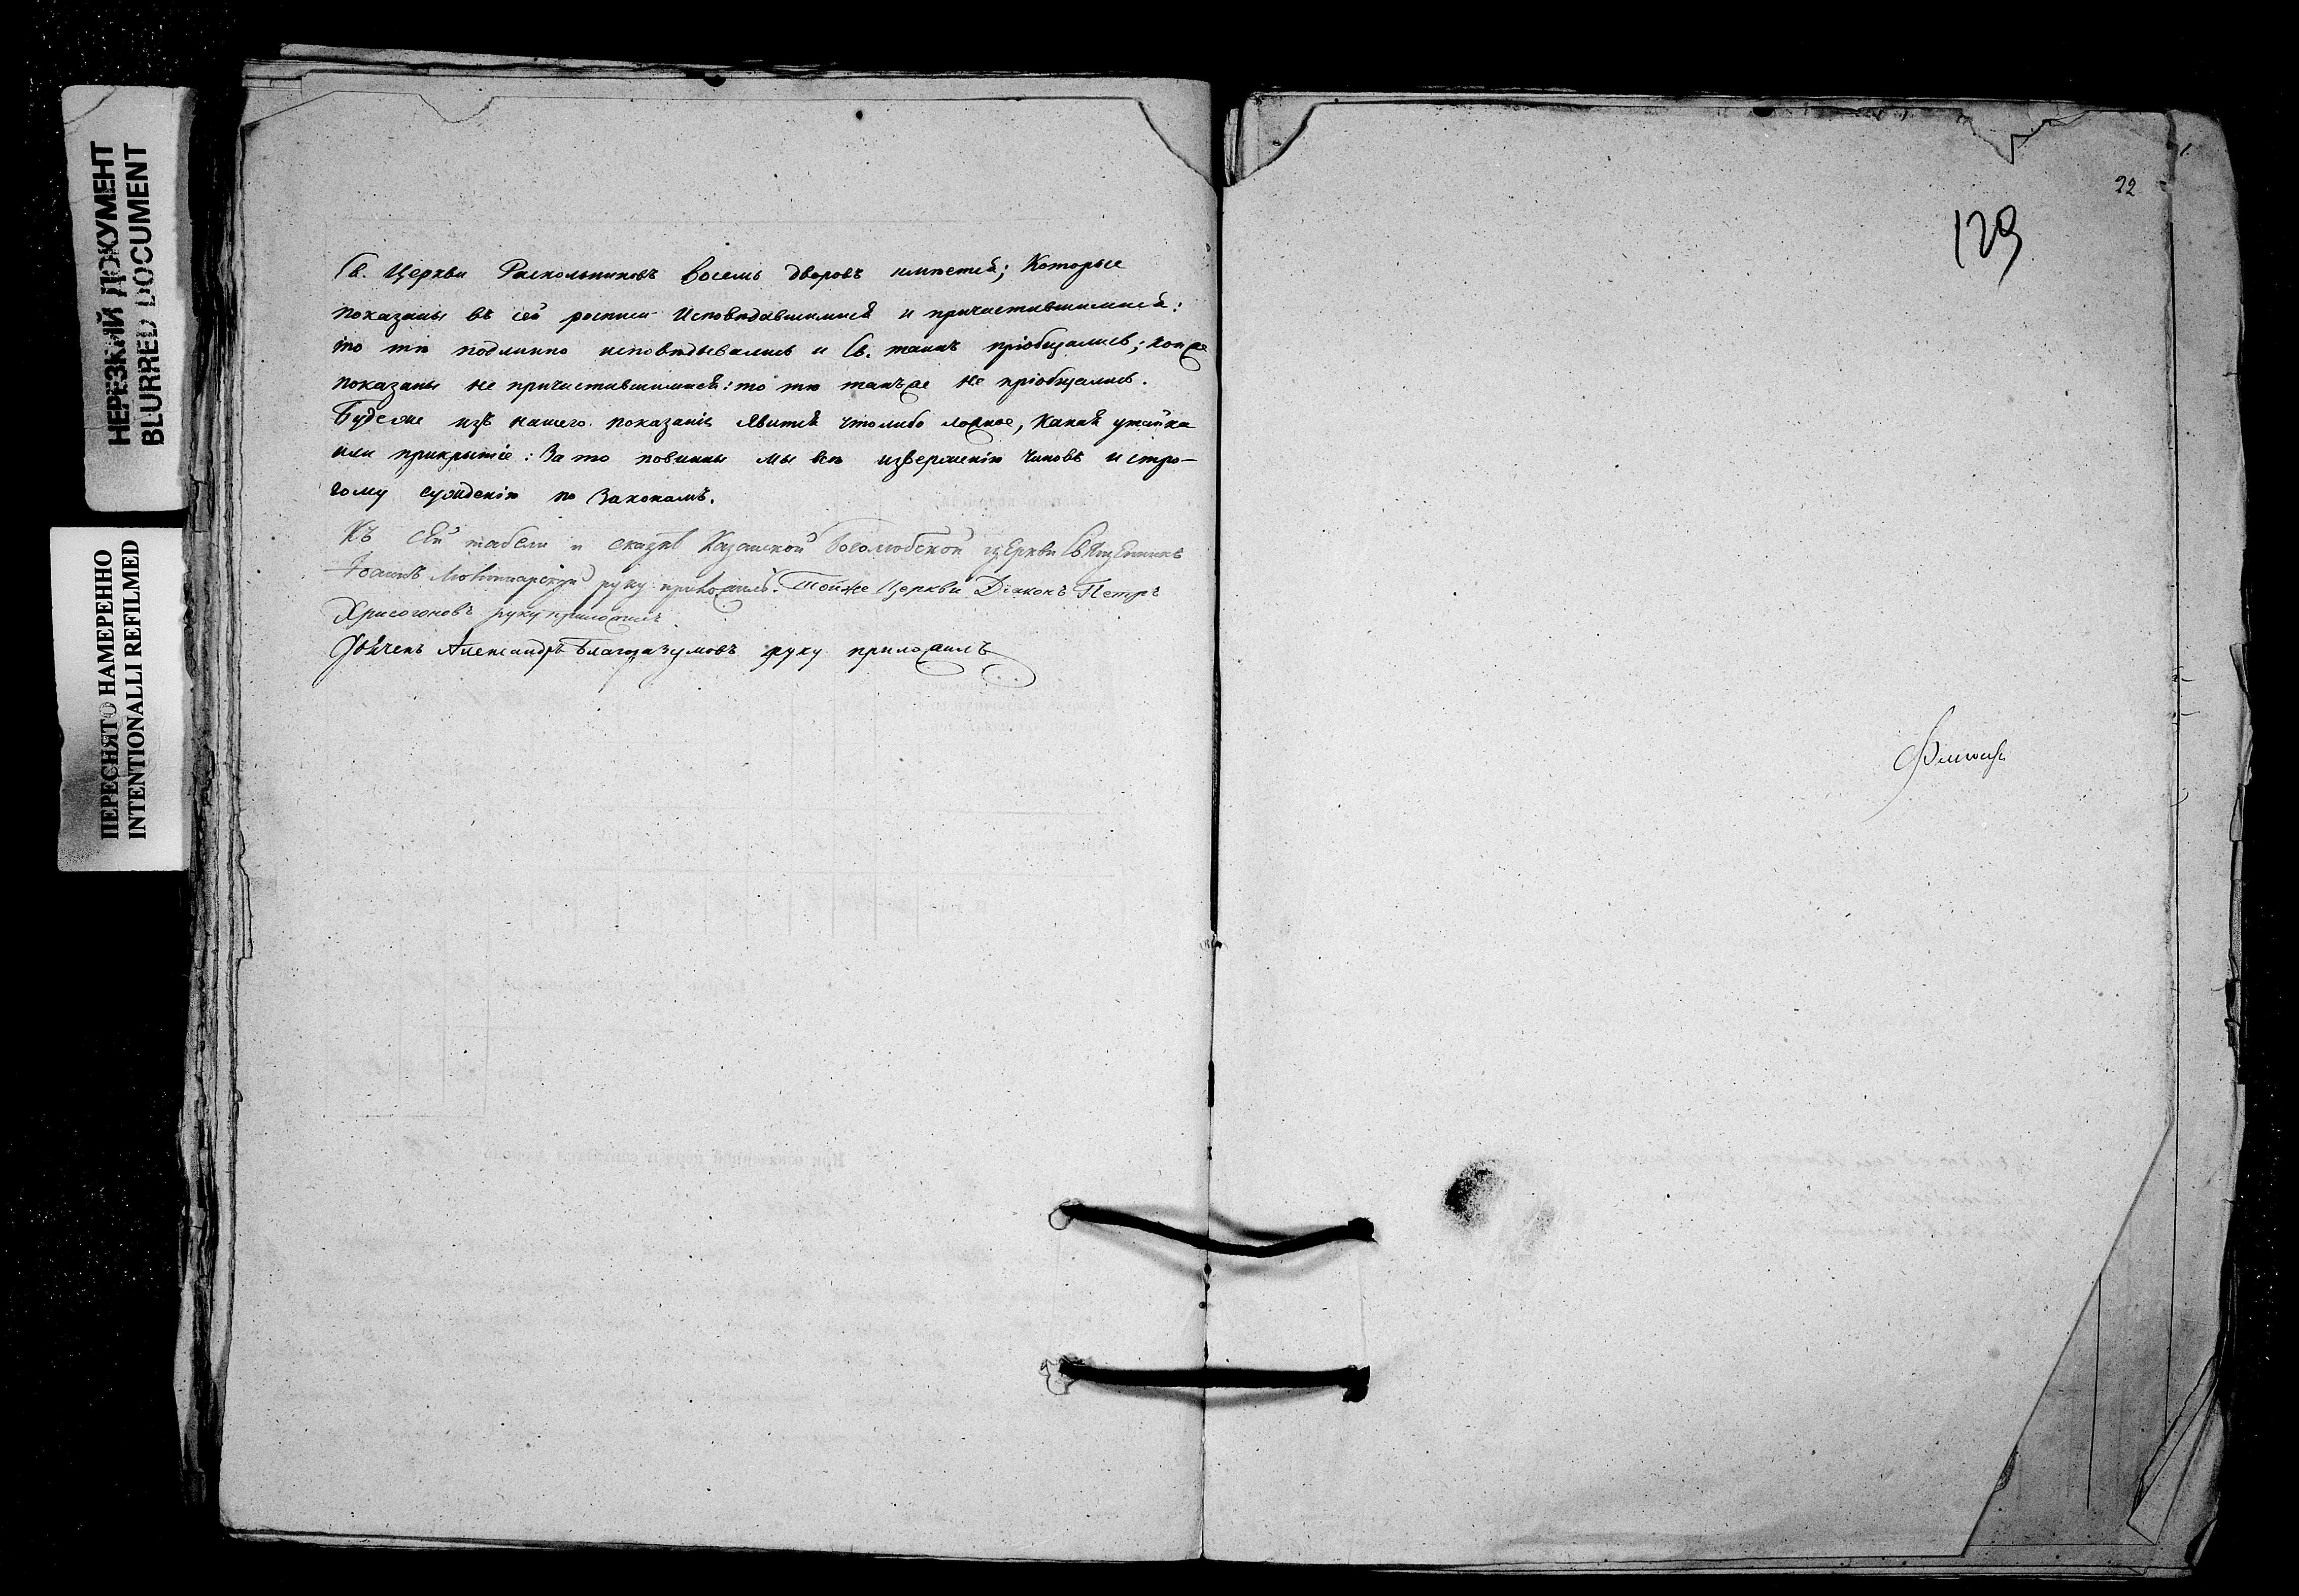 НЕРЕЗКИЙ ДОКУМЕНТ
BLURRED DOCUMENT
ПЕРЕСНЯТО НАМЕРЕННО
INTENTIONALLI REFILMED
Св. Церкви Раскольниковъ восемь дворовъ имѣется; Которые
показаны въ сей росписи Исповѣдавшимися и причастившимися:
то тѣ подлинно исповѣдывались и Св. таинъ пріобщались; кои же
показаны не причастившимися: то тѣ такъже не пріобщались.
Будеже изъ нашего показанія явится чтолибо ложное, какая утайка
или прикрытіе: За то повинны мы всѣ изверженію чиновъ и стро-
гому сужденію по Законамъ.
Къ сей табели и сказкѣ Казанской Боголюбской церкви Священникъ
Іоаннъ руку приложилъ. Тойже Церкви Діаконъ Петръ
Хрисогоновъ руку приложилъ
Дьячекъ Александръ Благоразумовъ руку приложилъ
22
129